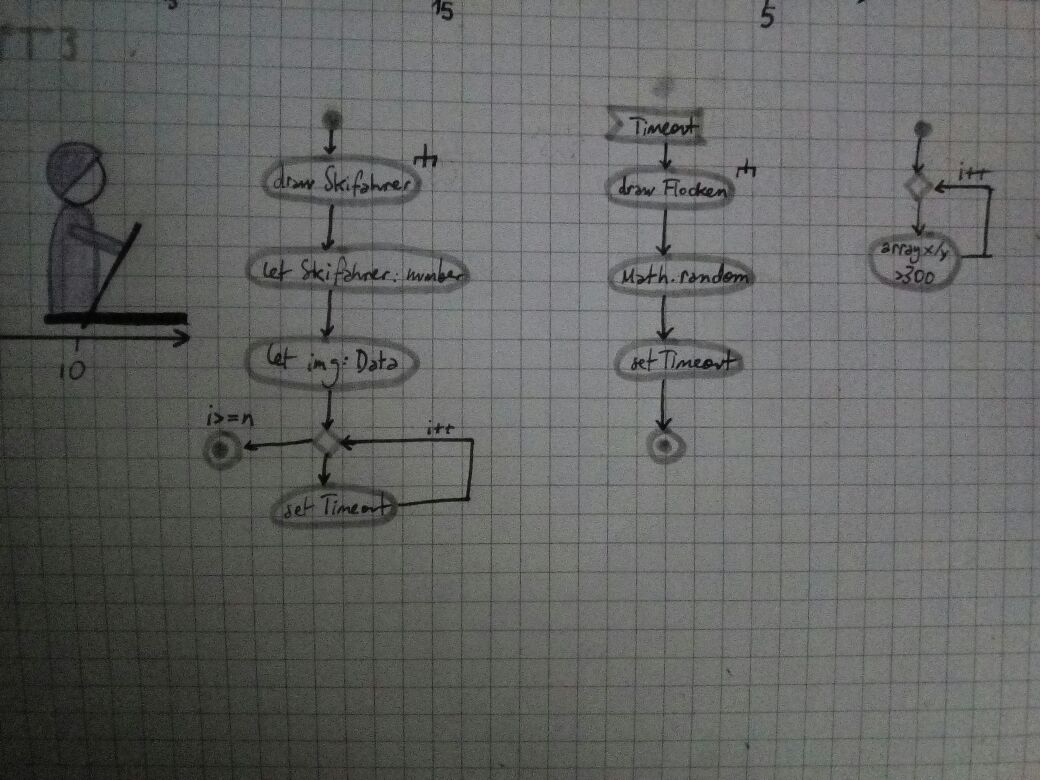 15
5
draw Skifahrer
let Skifahrer: number
let img: Data
i>=n
i++
set Timeout
10
Timeout
draw Flocken
Math.random
set Timeout
i++
array x/y
>300